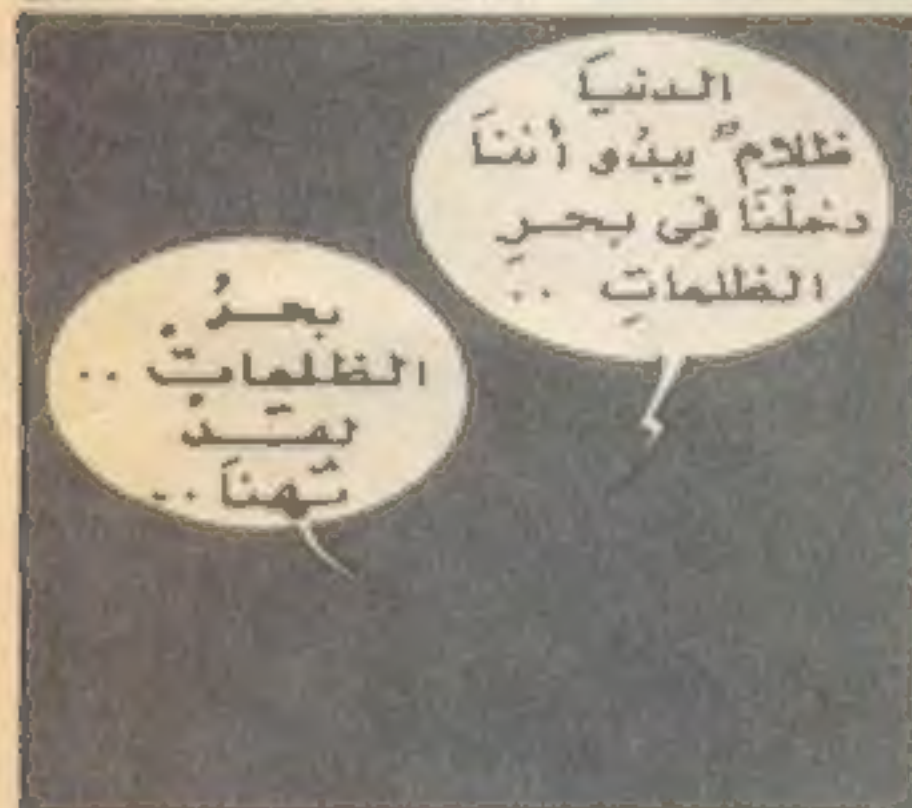 الدنيَا
ظلامٌ يبدُو أننَا
دخلْنَا فِي بحرِ
الظلماتِ ..
بحرُ
الظلماتِ ..
لقدْ
تهنَا ..